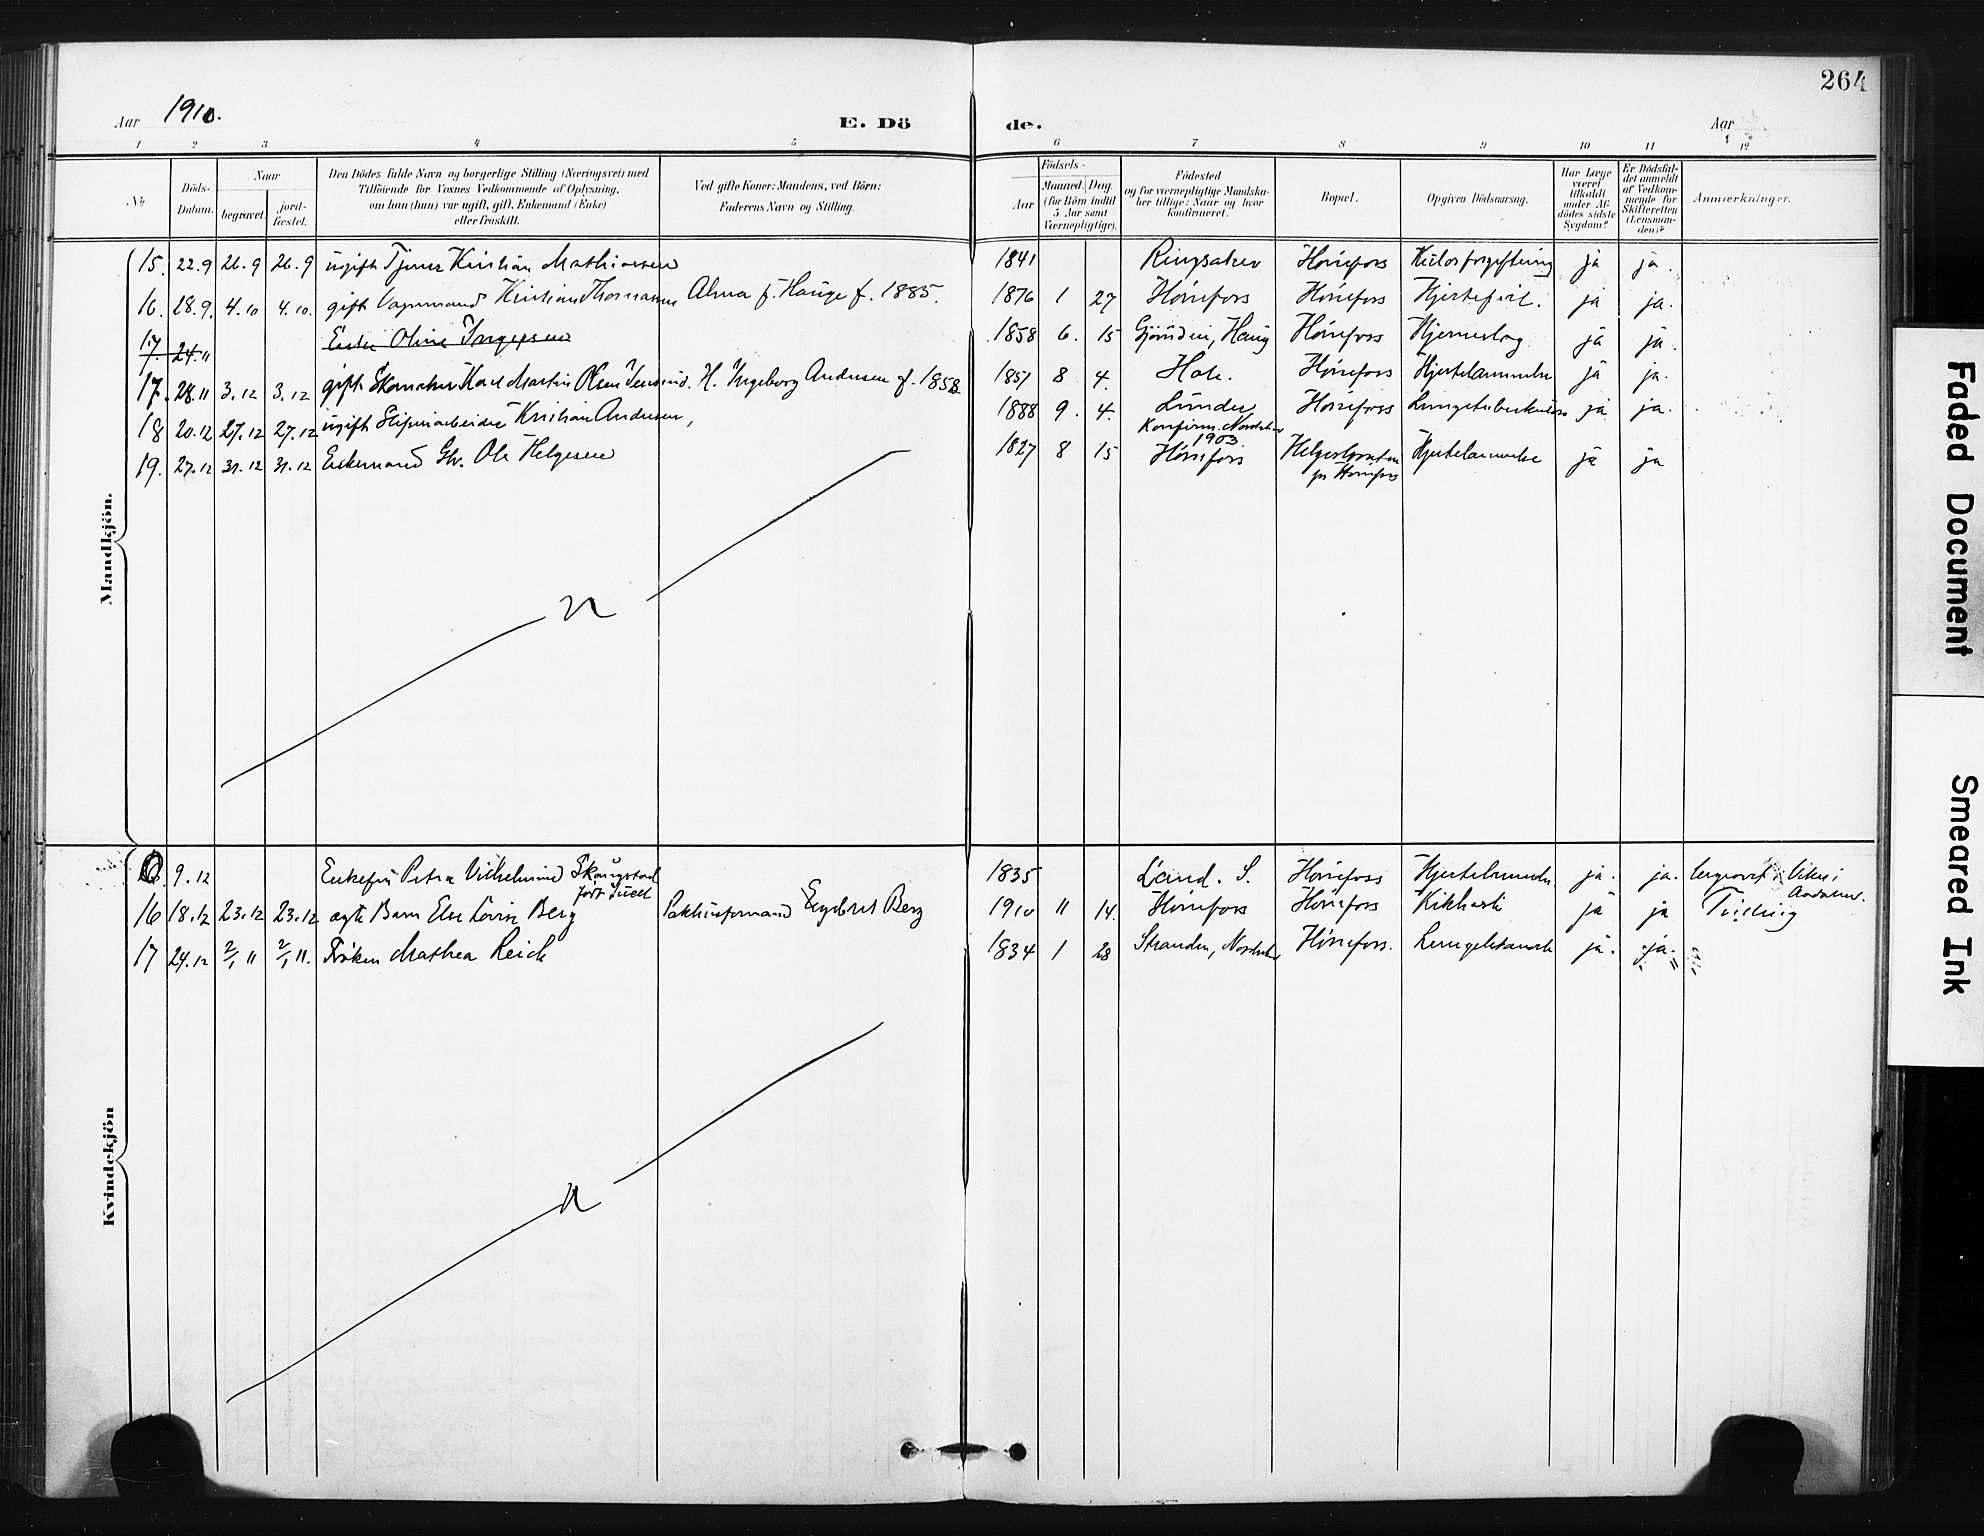 264
Aar 1910. E. Dö de. Aar
1 2 3 4 5 6 7 8 9 10 11 12
No
Döds-Datum.
Naar
begravet.
jord-fæstet.
Den Dödes fulde Navn og borgerlige Stilling (Næringsvei) med
Tilföiende for Voxnes Vedkommende af Oplysning,
om han (hun) var ugift, gift, Enkemand (Enke)
eller fraskilt.
Ved gifte Koner: Mandens, ved Börn:
Faderens Navn og Stilling.
Födsels-
Aar
Maaned. Dag.
(for Börn indtil
5 Aar samt
Værnepligtige).
Födested
og for værnepligtige Mandsku-
ber tillige: Naar og hvor
konfirmeret.
Bopæl.
Opgiven Dödsaarsag.
Har Læge
været
tilkaldt
under Af-
dödes sidste
Sygdom?
Er Dödsfal-
det anmeldt
af Vedkom-
mende for
Skifteretten
(Lensman-
den)?
Anmærkninger.
Mandkjön.
15. 22.9 26.9 26.9 ugift Tjener Kristian Mathiesen 1841 Ringsaker Hønefoss ja ja.
16. 28.9. 4.10 4.10. gift Vognmand Kristian Thomassen Alma f. Hauge f. 1885. 1876 1 27 Hønefoss Hønefoss Hjertefeil. ja ja.
17. 24.11 Enke Oline 1858 6. 15 Haug Hønefoss Hjerneslag ja ja.
17. 28.11 3.12 3.12 gift Skomaker Karl Martin Olsen H. Ingeborg Andersen f. 1858 1857 8 4. Hole. Hønefoss Hjertelammelse ja ja.
18 20.12 27.12 27.12 ugift Sliperiarbeider Kristian Andersen, 1888 9. 4. Lunder Konfirm. Norderhov 1903. Hønefoss Lungetuberkulose ja ja.
19. 27.12 31.12 31.12 Enkemand Ole Helgesen 1827 8 15 Hønefoss pr Hønefoss Hjertelammelse ja ja
Kvindekjön
9.12 Enkefru Petra Vilhelmine Skougstad født Juell 1835 Land. S. Hønefoss Hjertelammelse. ja. ja. begravet
16 18.12 23.12 23.12 ægte Barn Else Lovise Berg Engebret Berg 1910 11 14. Hønefoss Hønefoss Kikhoste ja ja Tvilling
17 24.12 2/1 11 2/1 11. Frøken Mathea Reich 1834 1 28 Stranden, Norderhov Hønefoss. ja. ja.
Faded Document
Smeared Ink